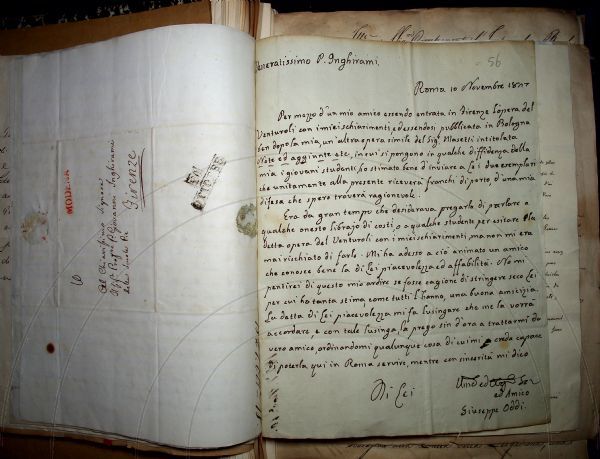 Veneratissimo P. Inghirami.
56
Roma 10 Novembre 1827
Per mezzo d'un mio amico essendo entrata in Firenze l'opera del
Venturoli con i miei schiarimenti, ed essendosi pubblicata in Bologna
ben dopo la mia, un'altra opera simile del Sig. Masetti intitolata
Note ed aggiunte etc., in cui si pongono in qualche diffidenza dalla
mia i giovani studenti, ho stimato bene d'inviare a Lei due esemplari
che unitamente alla presente riceverà franchi di porto, d'una mia
difesa che spero troverà ragionevole.
Era da gran tempo che desiderava pregarla di parlare a
qualche onesto librajo di costì, o a qualche studente per esitare
detta opera del Venturoli con i miei schiarimenti, ma non mi era
mai rischiato di farlo. Mi ha adesso a ciò animato un amico
che conosce bene la di Lei piacevolezza ed affabilità. No mi
pentirei di questo mio ardire se fosse cagione di stringere seco Lei
per cui ho tanta stima, come tutti l'hanno, una buona amicizia.
La detta di Lei piacevolezza mi fa lusingare che me la vorrà
accordare, e con tale lusinga, la prego sin d'ora a trattarmi da
vero amico, ordinandomi qualunque cosa di cui mi creda capace
di poterla qui in Roma servire, mentre con sincerità mi dico
Di Lei
ed Amico
Giuseppe Oddi.
MODENA
Al Chiarissimo Signore
Giovanni Inghirami
delle Scuole Pie
Firenze